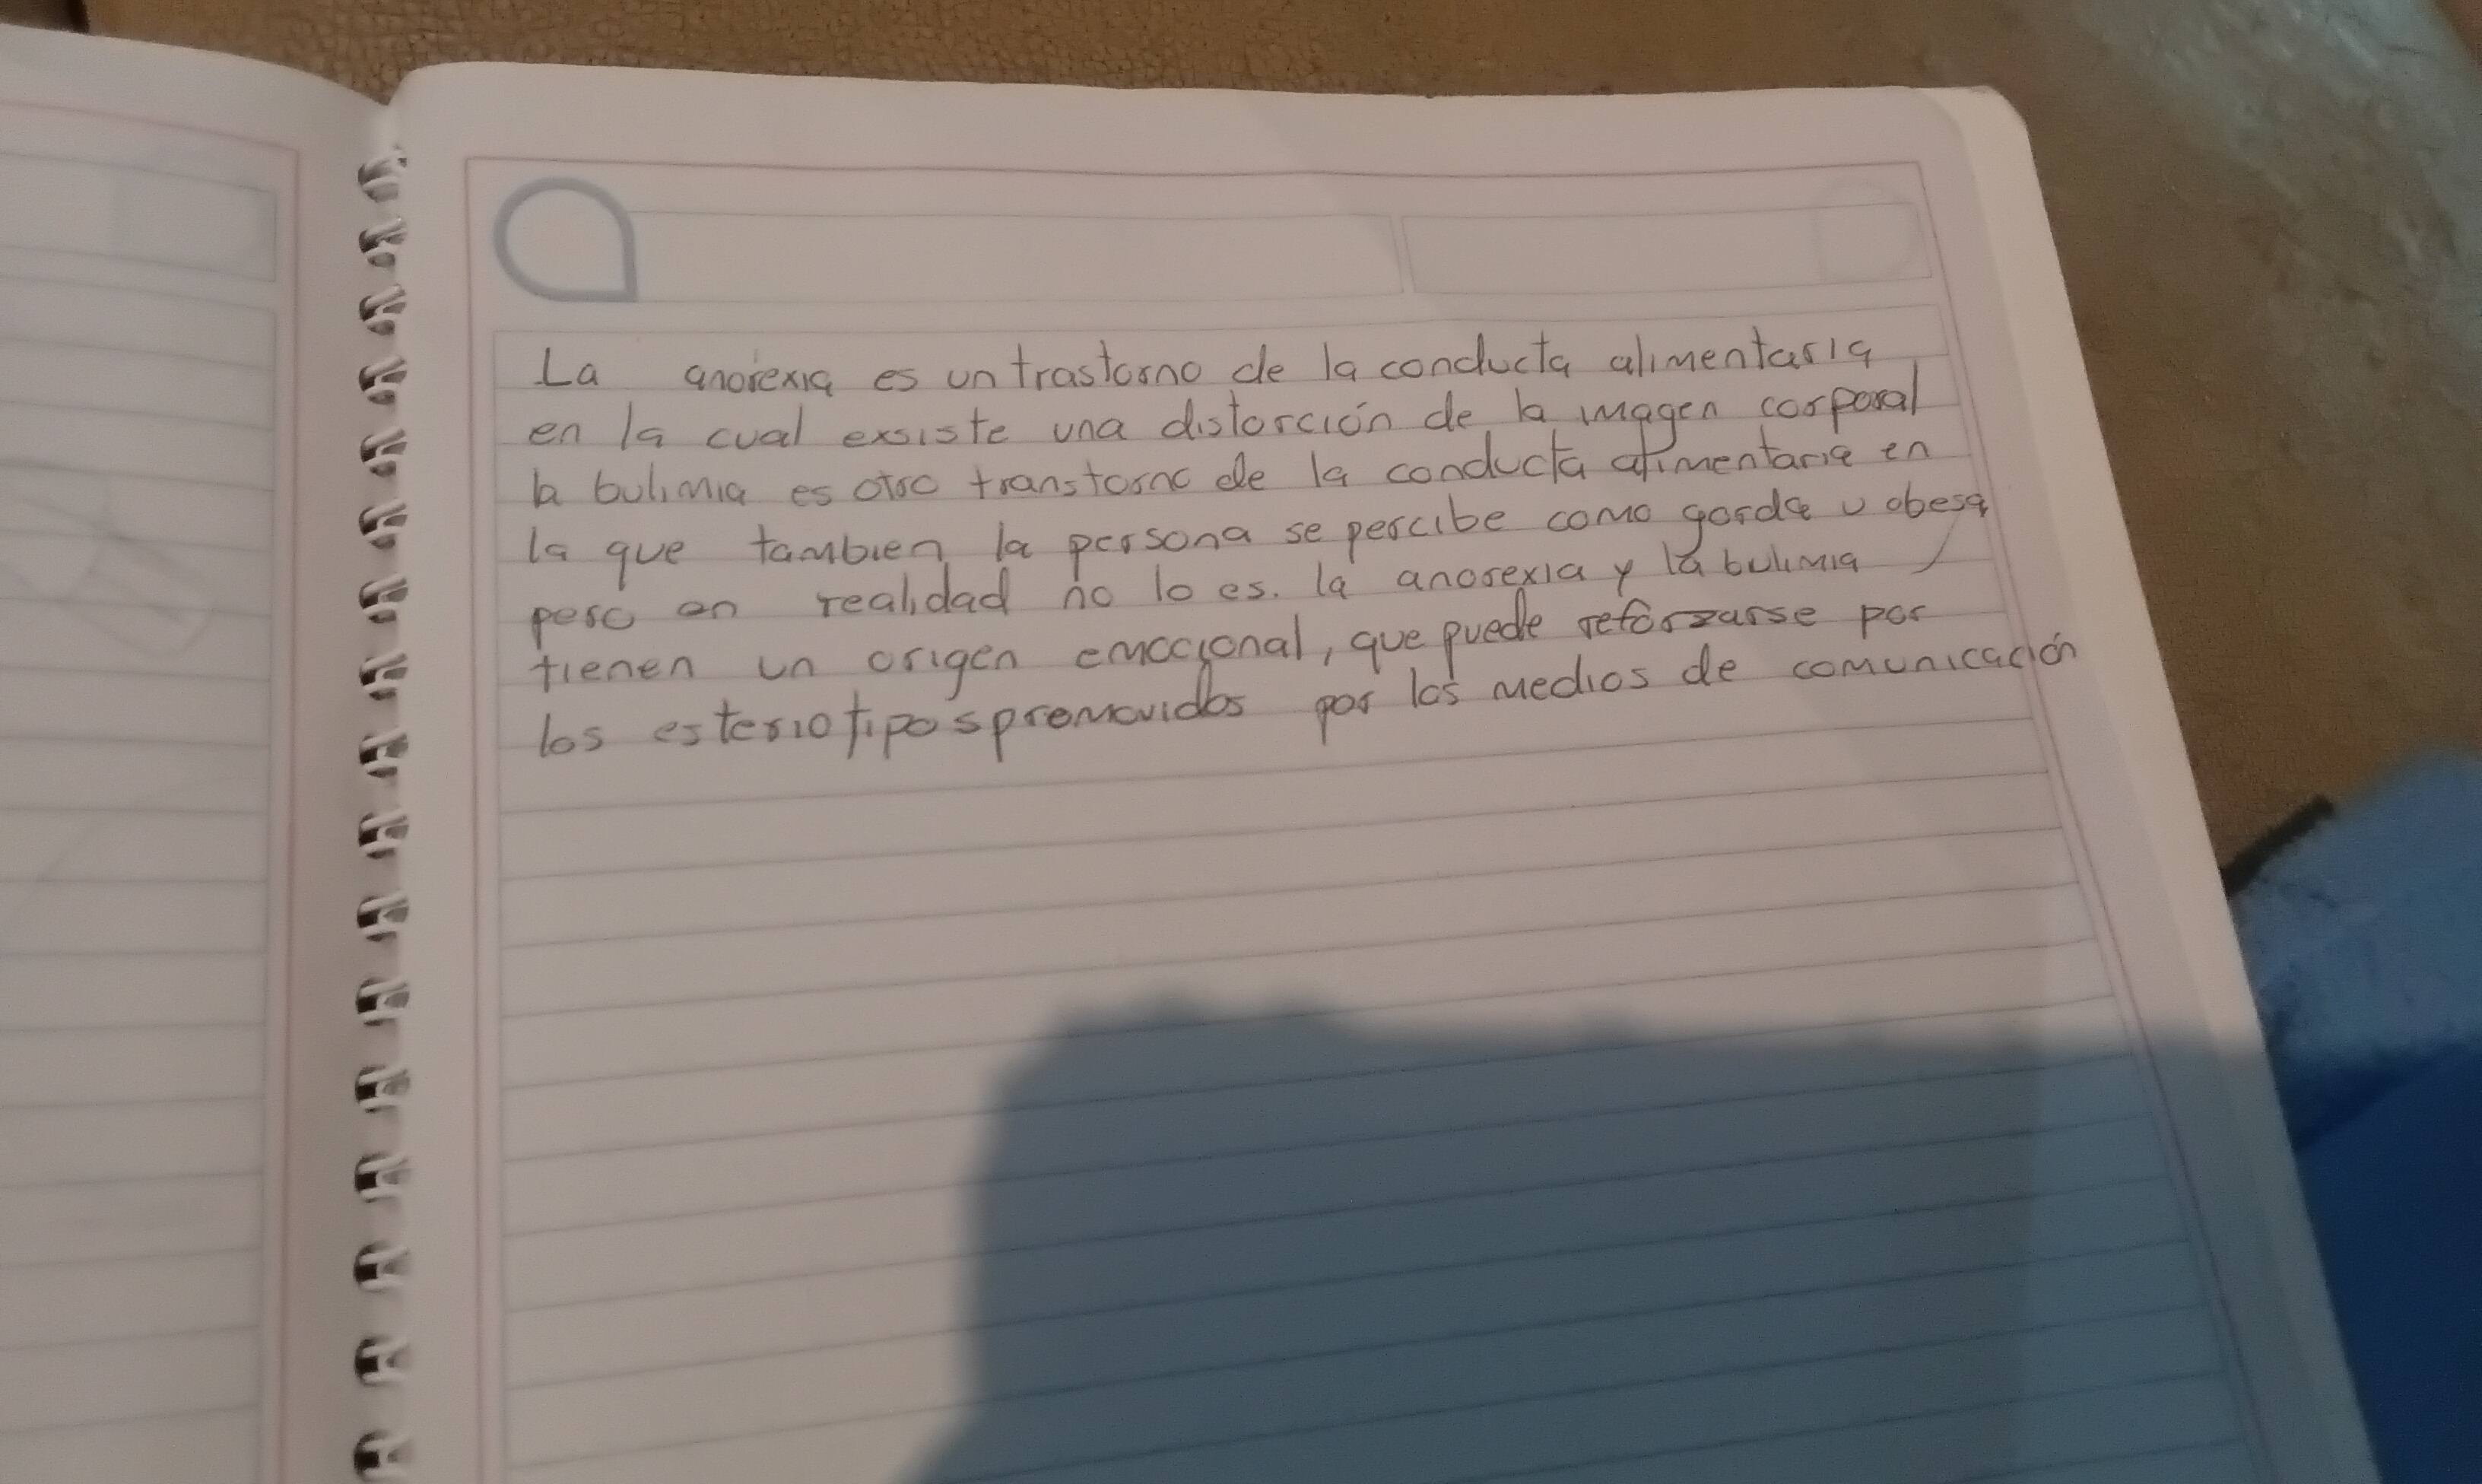 La anorexia es un trastorno de la conducta alimentaria
en la cual exsiste una distorción de la imagen corporal
la bulimia es otro transtorno de la conducta alimentaria en
la que tambien la persona se percibe como gorda u obesa
pero en realidad no lo es. la anorexia y la bulimia
tienen un origen emocional, que puede reforzarse por
los esteriotipos promovidos por los medios de comunicación